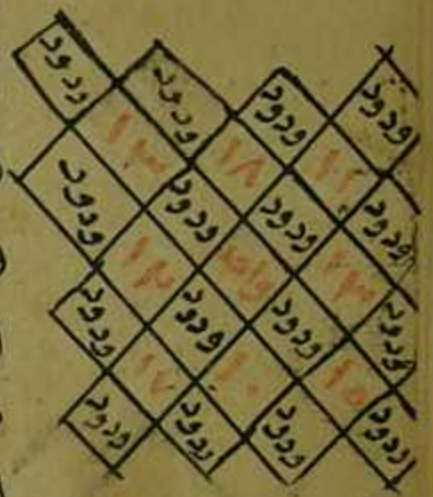 ودود ودود ودود ودود
١٨
ودود ودود ودود ودود
واحد
ودود ودود ودود ودود
١٧
ودود ودود ودود ودود